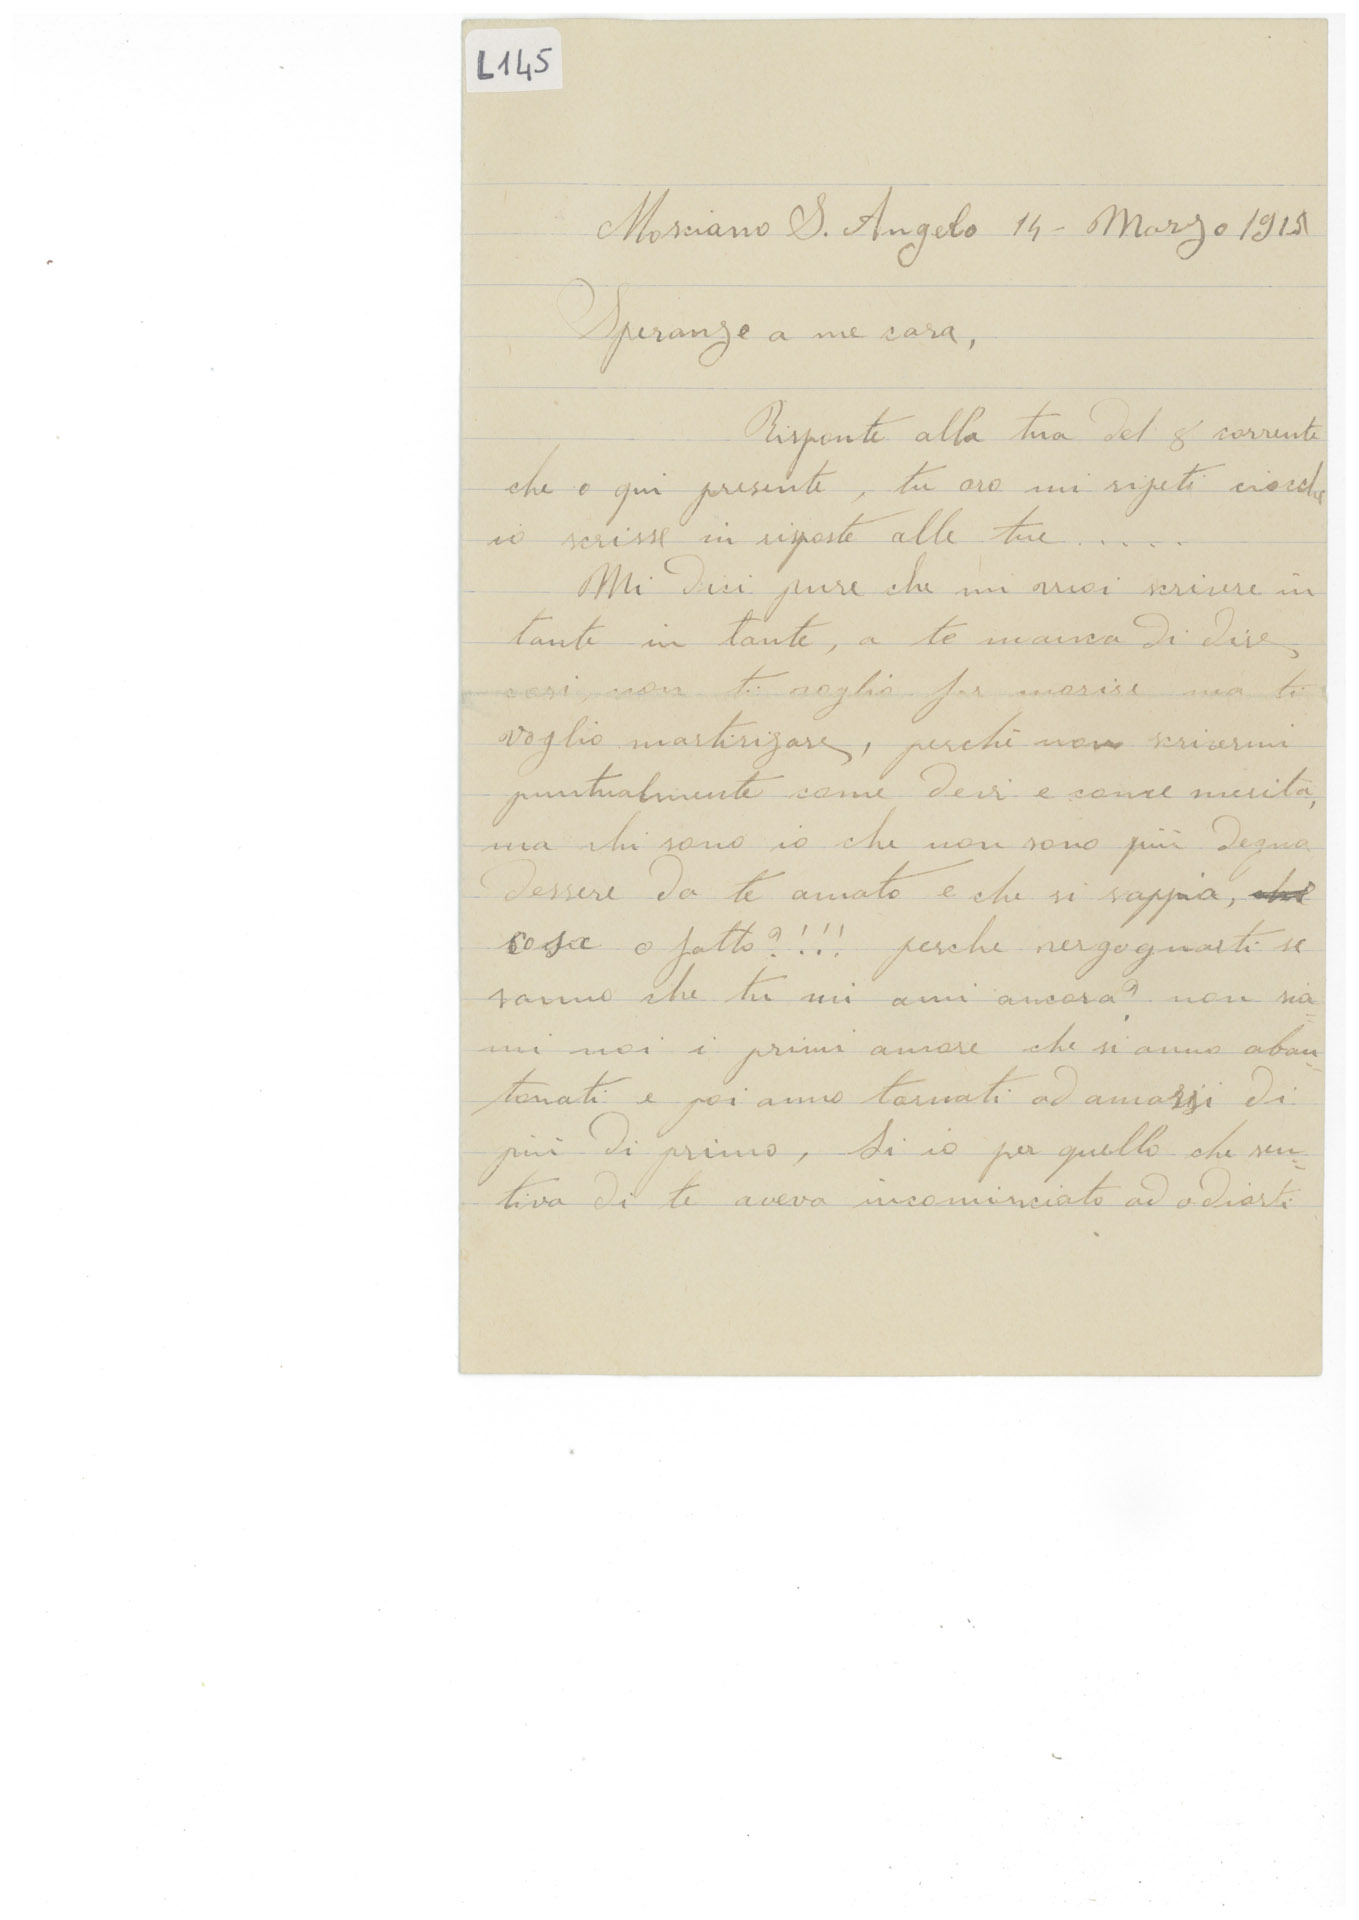 L145
Mosciano S. Angelo 14 - Marzo 1915
Speranze a me care,
Risponte alla tua del 8 corrente
che o qui presente, tu ora mi ripeti ciocche
io scrisse in risposte alle tue .....
Mi dici pure che mi vuoi scrivere in
tante in tante, a te manca di dire
cosi, non ti voglio far morire ma ti
voglio martirizare, perchè non scrivermi
puntualmente come devi e come merita,
ma chi sono io che non sono più degna
dessere da te amato e che si sappia, che
cosa o fatto?!!! perche vergognarti se
sanno che tu mi ami ancora? non sia=
mi noi i primi amore che si anno aban=
tonati e poi anno tornati ad amarsi di
più di primo, Si io per quello che sen=
tiva di te aveva incominciato ad odiarti